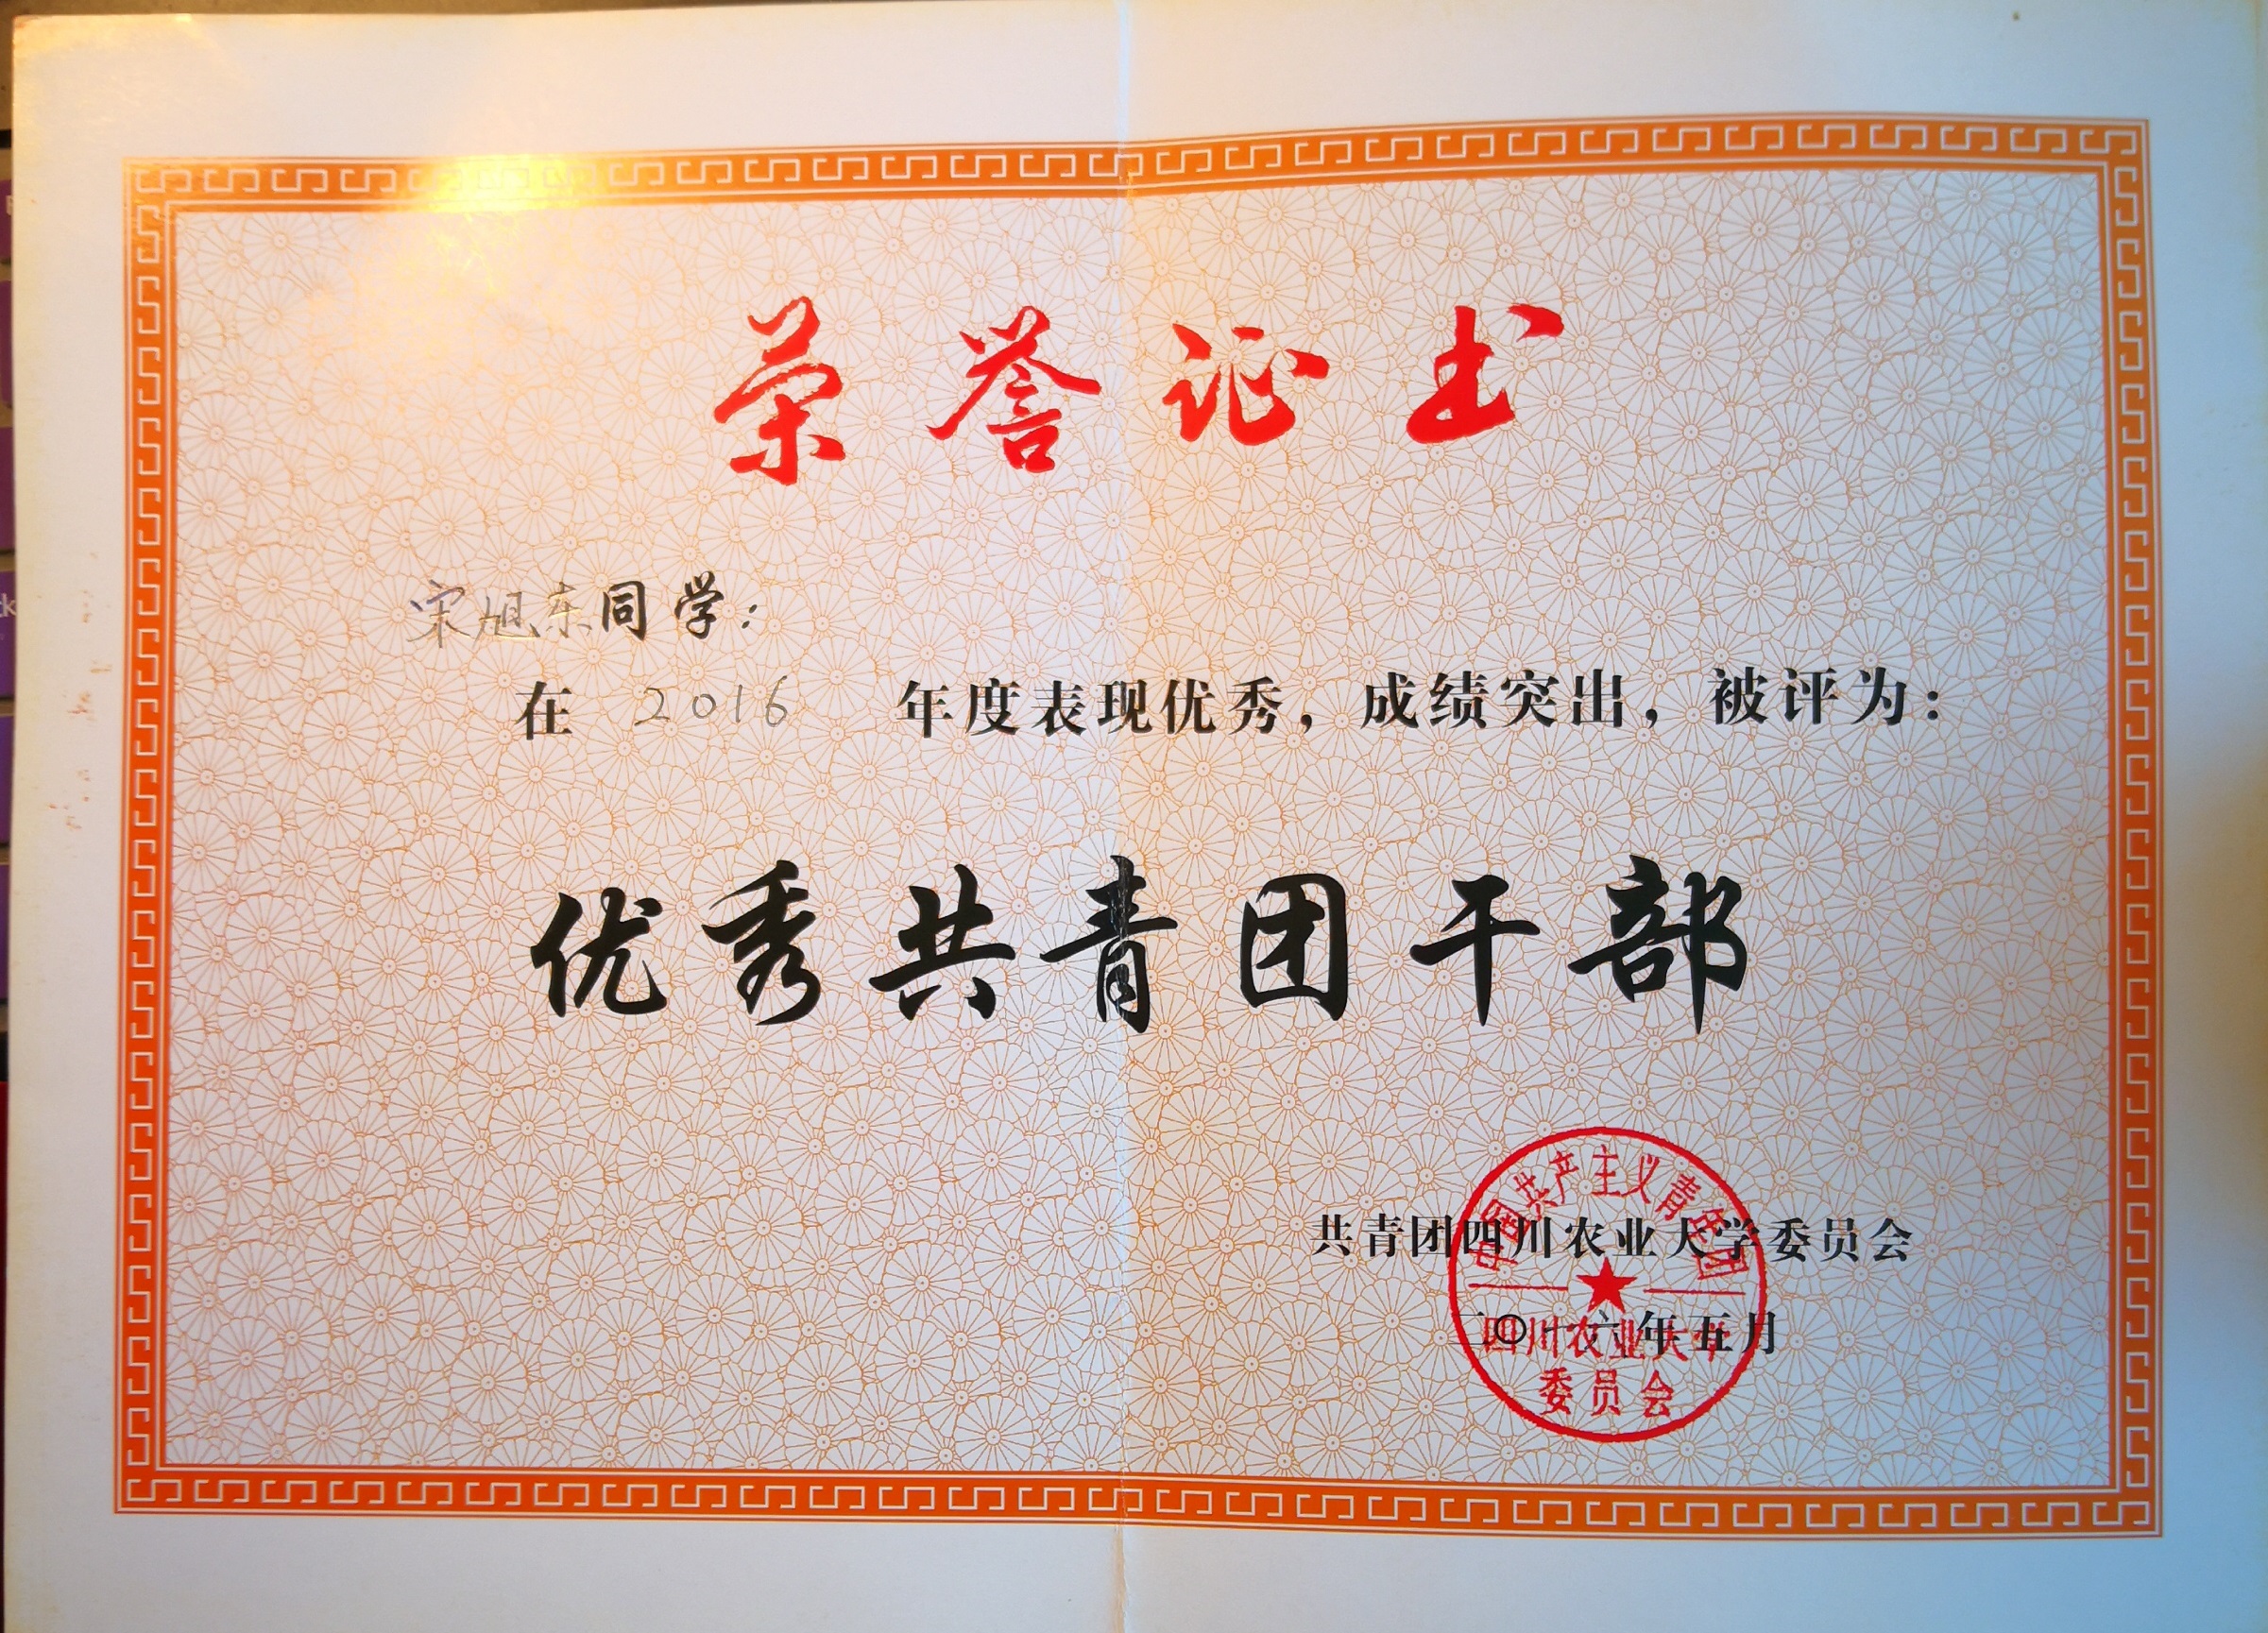 荣誉证书
宋旭东同学：
在 2016 年度表现优秀，成绩突出，被评为：
优秀共青团干部
共青团四川农业大学委员会
二〇一六年五月
中国共产主义青年团
四川农业大学
委员会